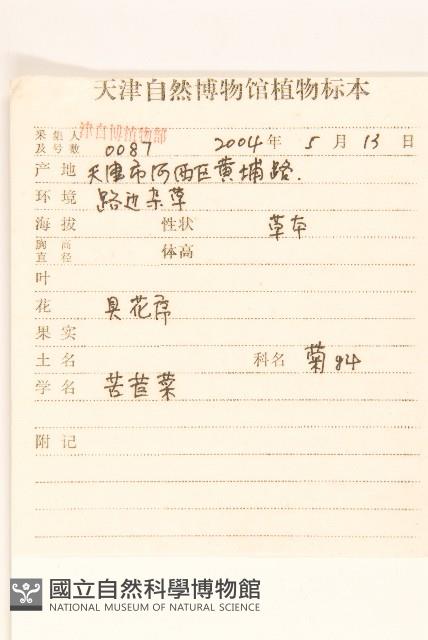 天津自然博物馆植物标本
采集人 津自博植物部
及号数 0087 2004年 5月 13日
产地 天津市河西区黄埔路.
环境 路边杂草
海拔 性状 草本
胸高直径 体高
叶
花 具花序
果实
土名 科名 菊84
学名 苦苣菜
附记
國立自然科學博物館
NATIONAL MUSEUM OF NATURAL SCIENCE